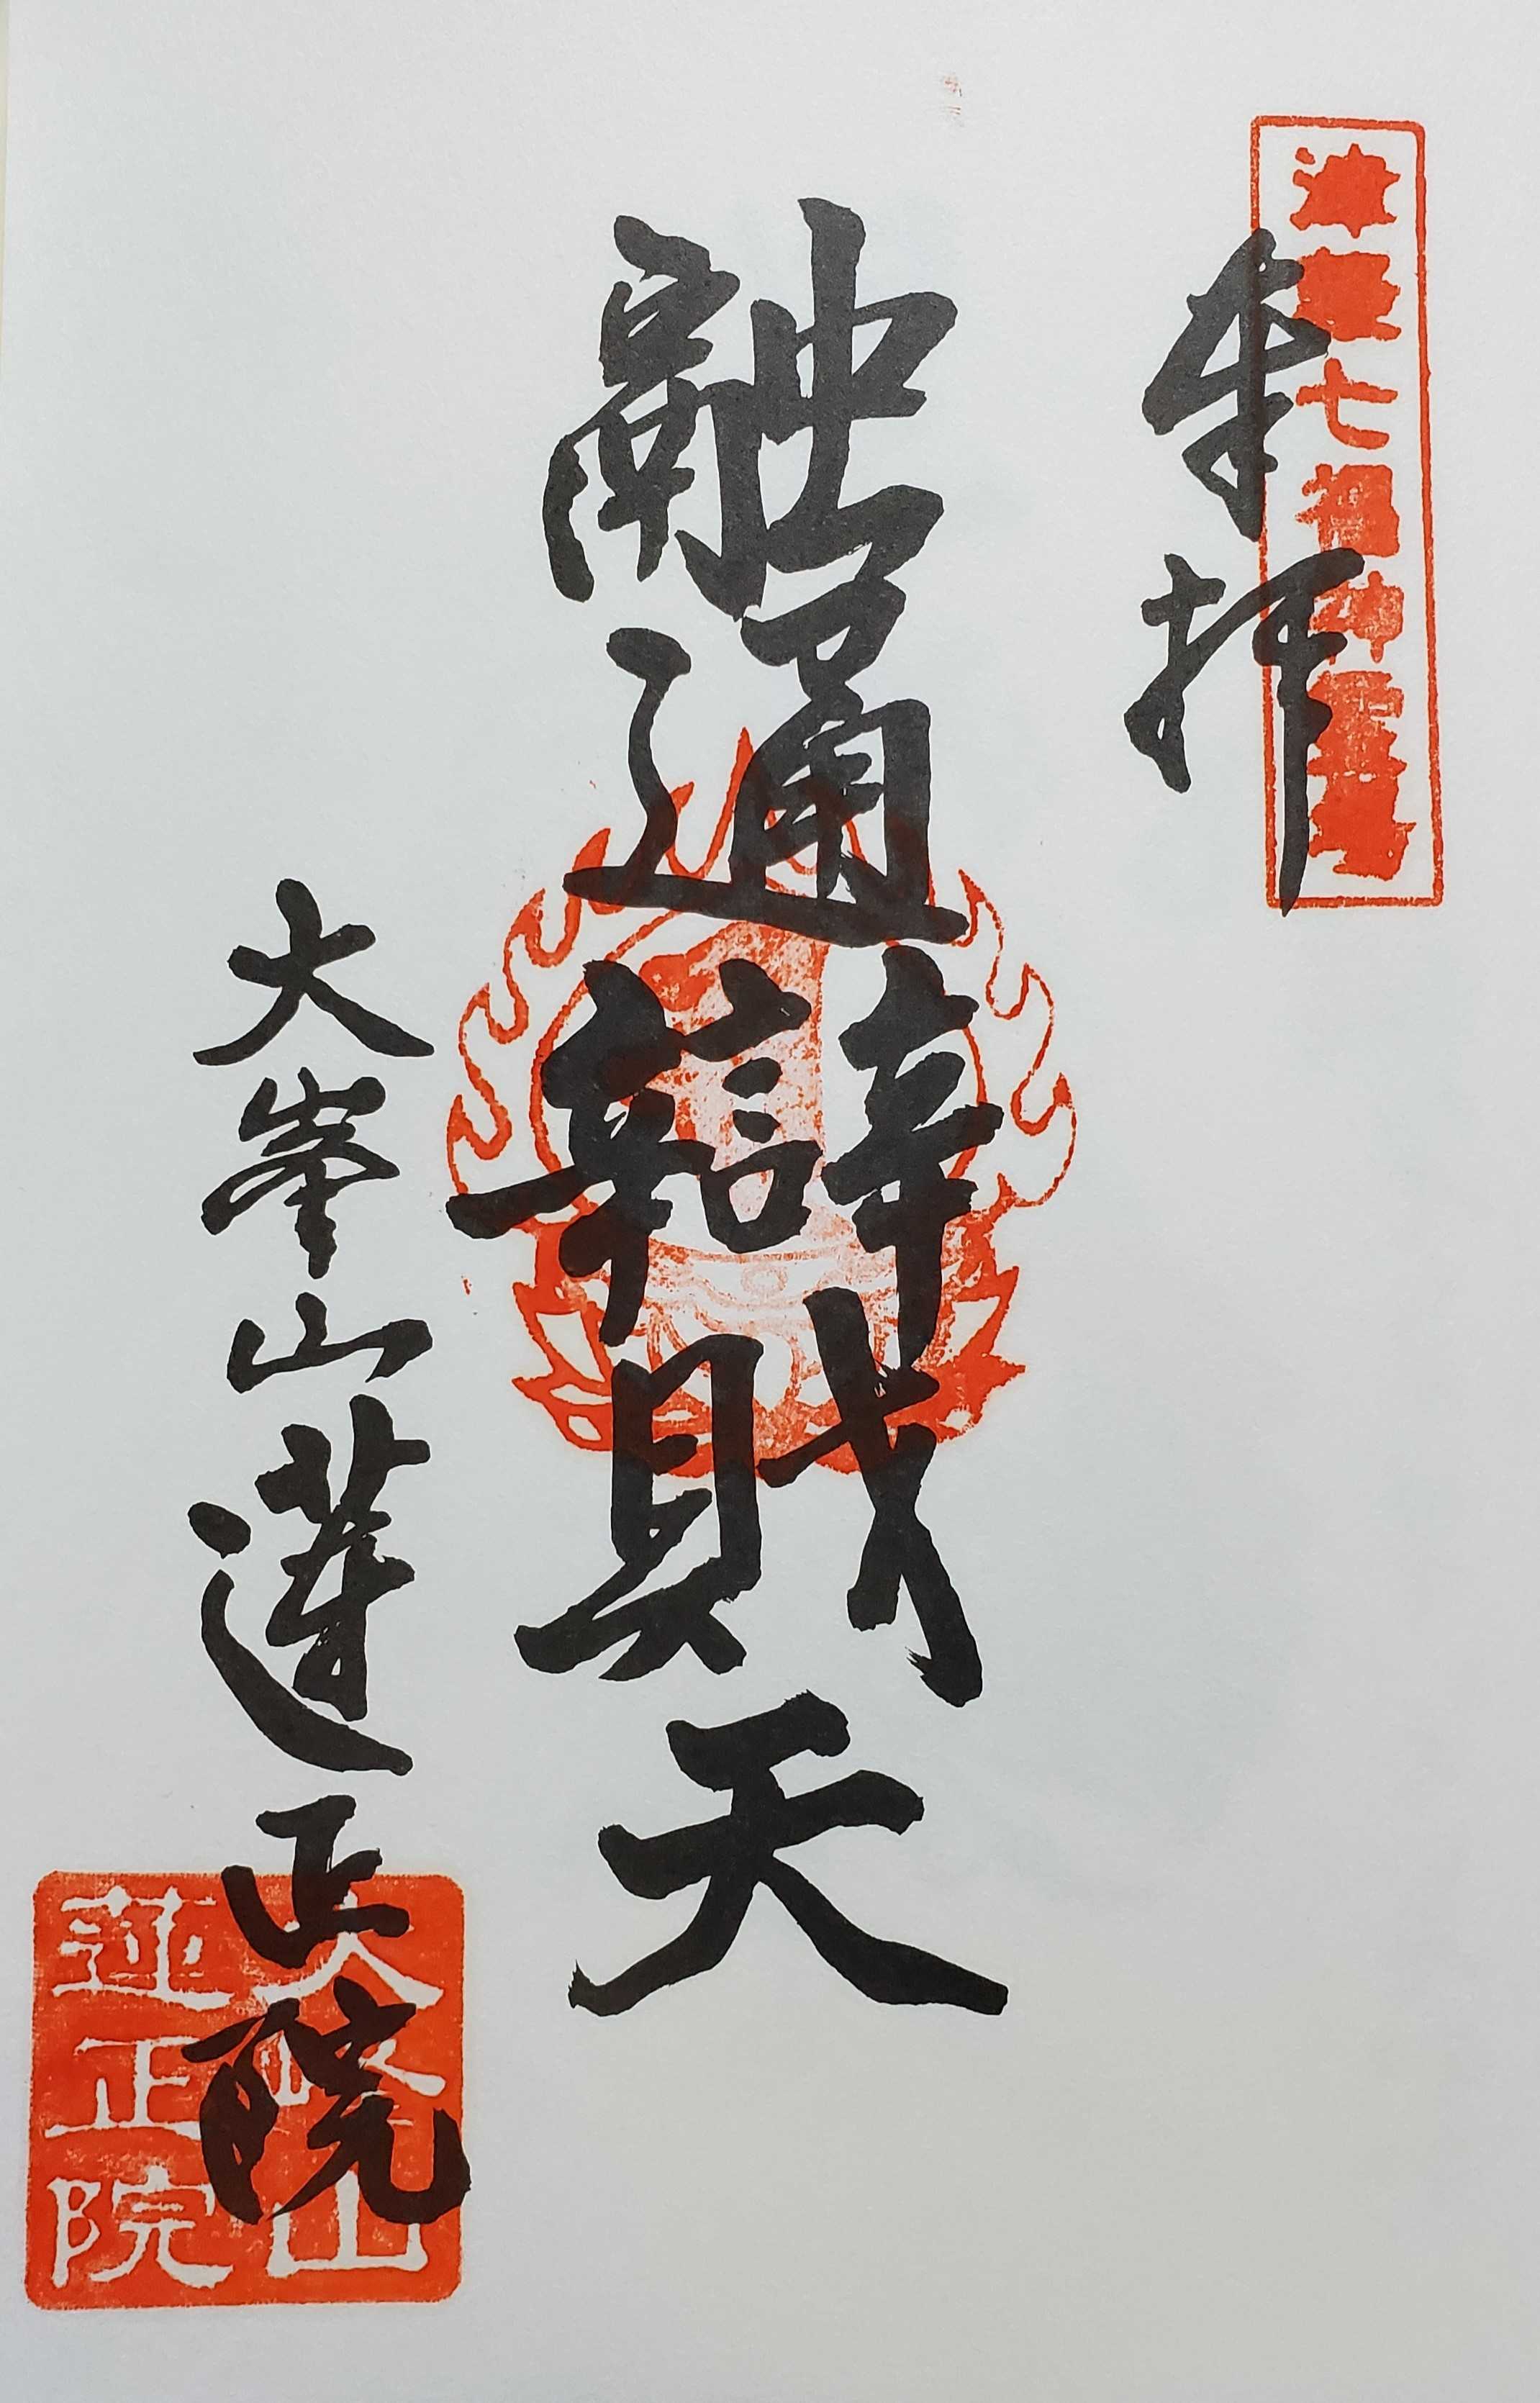 津軽七福神霊場
奉拝
融通辯財天
大峯山蓮正院
大峰山
蓮正院